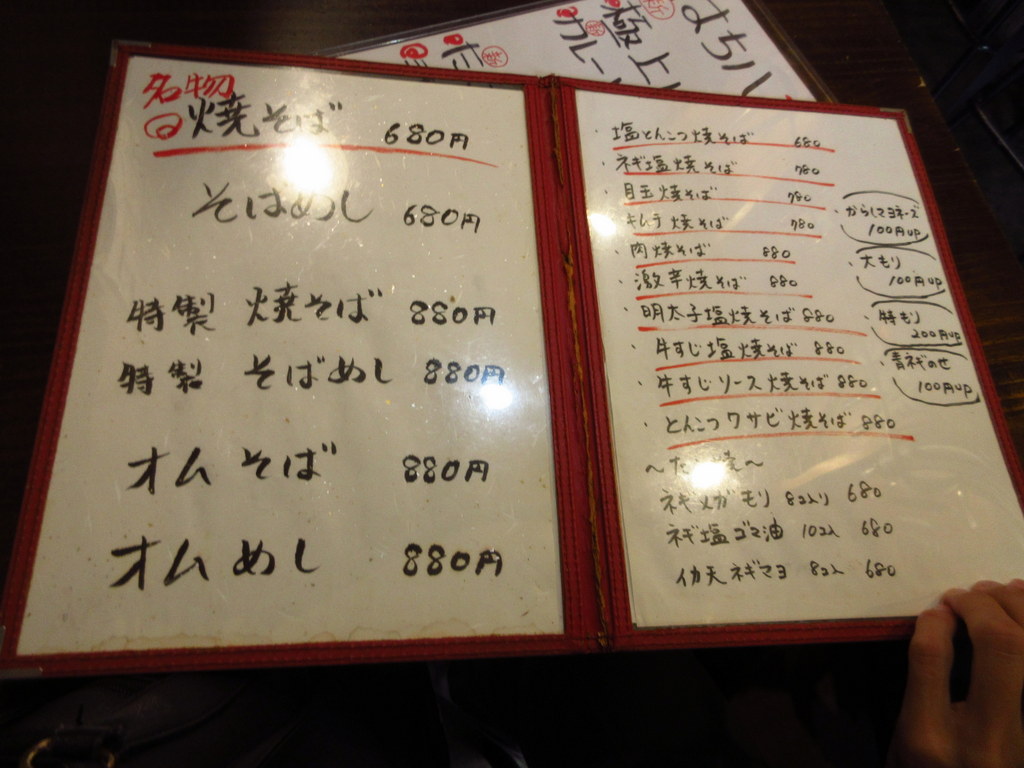 名物
焼そば 680円
そばめし 680円
特製 焼そば 880円
特製 そばめし 880円
オム そば 880円
オム めし 880円
・塩とんこつ焼そば 680
・ネギ塩焼そば 780
・目玉焼そば 780
・キムラ焼そば 780
・肉焼そば 880
・激辛焼そば 880
・明太子塩焼そば 880
・牛すじ塩焼そば 880
・牛すじソース焼そば 880
・とんこつワサビ焼そば 880
ネギメガモリ 8コ入り 680
ネギ塩ゴマ油 10コ入 680
イカ天ネギマヨ 8コ入 680
・からしマヨネーズ
100円UP
・大もり
100円UP
・特もり
200円UP
・青ネギのせ
100円UP
新
極上
カレー